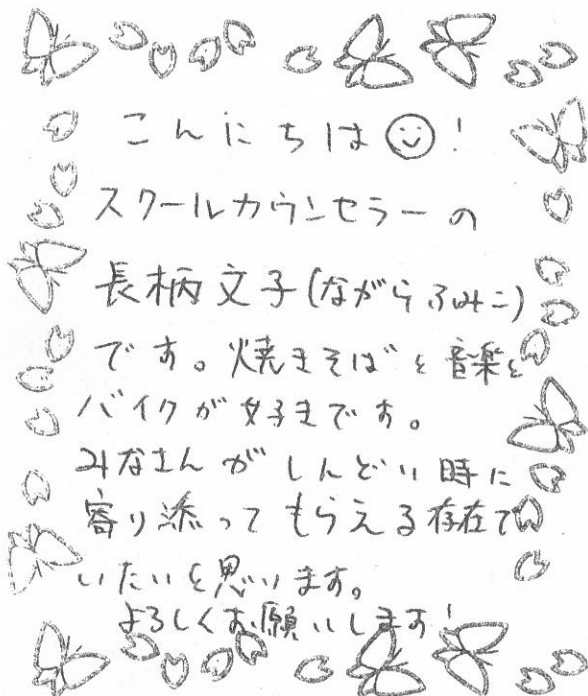 こんにちは☺!
スクールカウンセラーの
長柄文子(ながらふみこ)
です。焼きそばと音楽と
バイクが好きです。
みなさんがしんどい時に
寄り添ってもらえる存在で
いたいと思います。
よろしくお願いします!